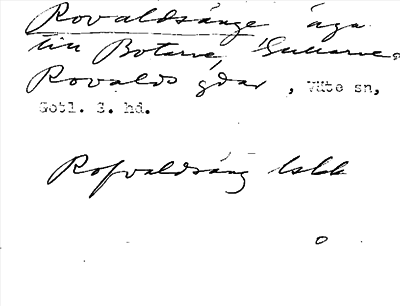 Rovaldsänge äga
till Botarve, Gullarve
Rovalds gdar, Väte sn,
Gotl. S. hd.
Rofvaldsäng lskk